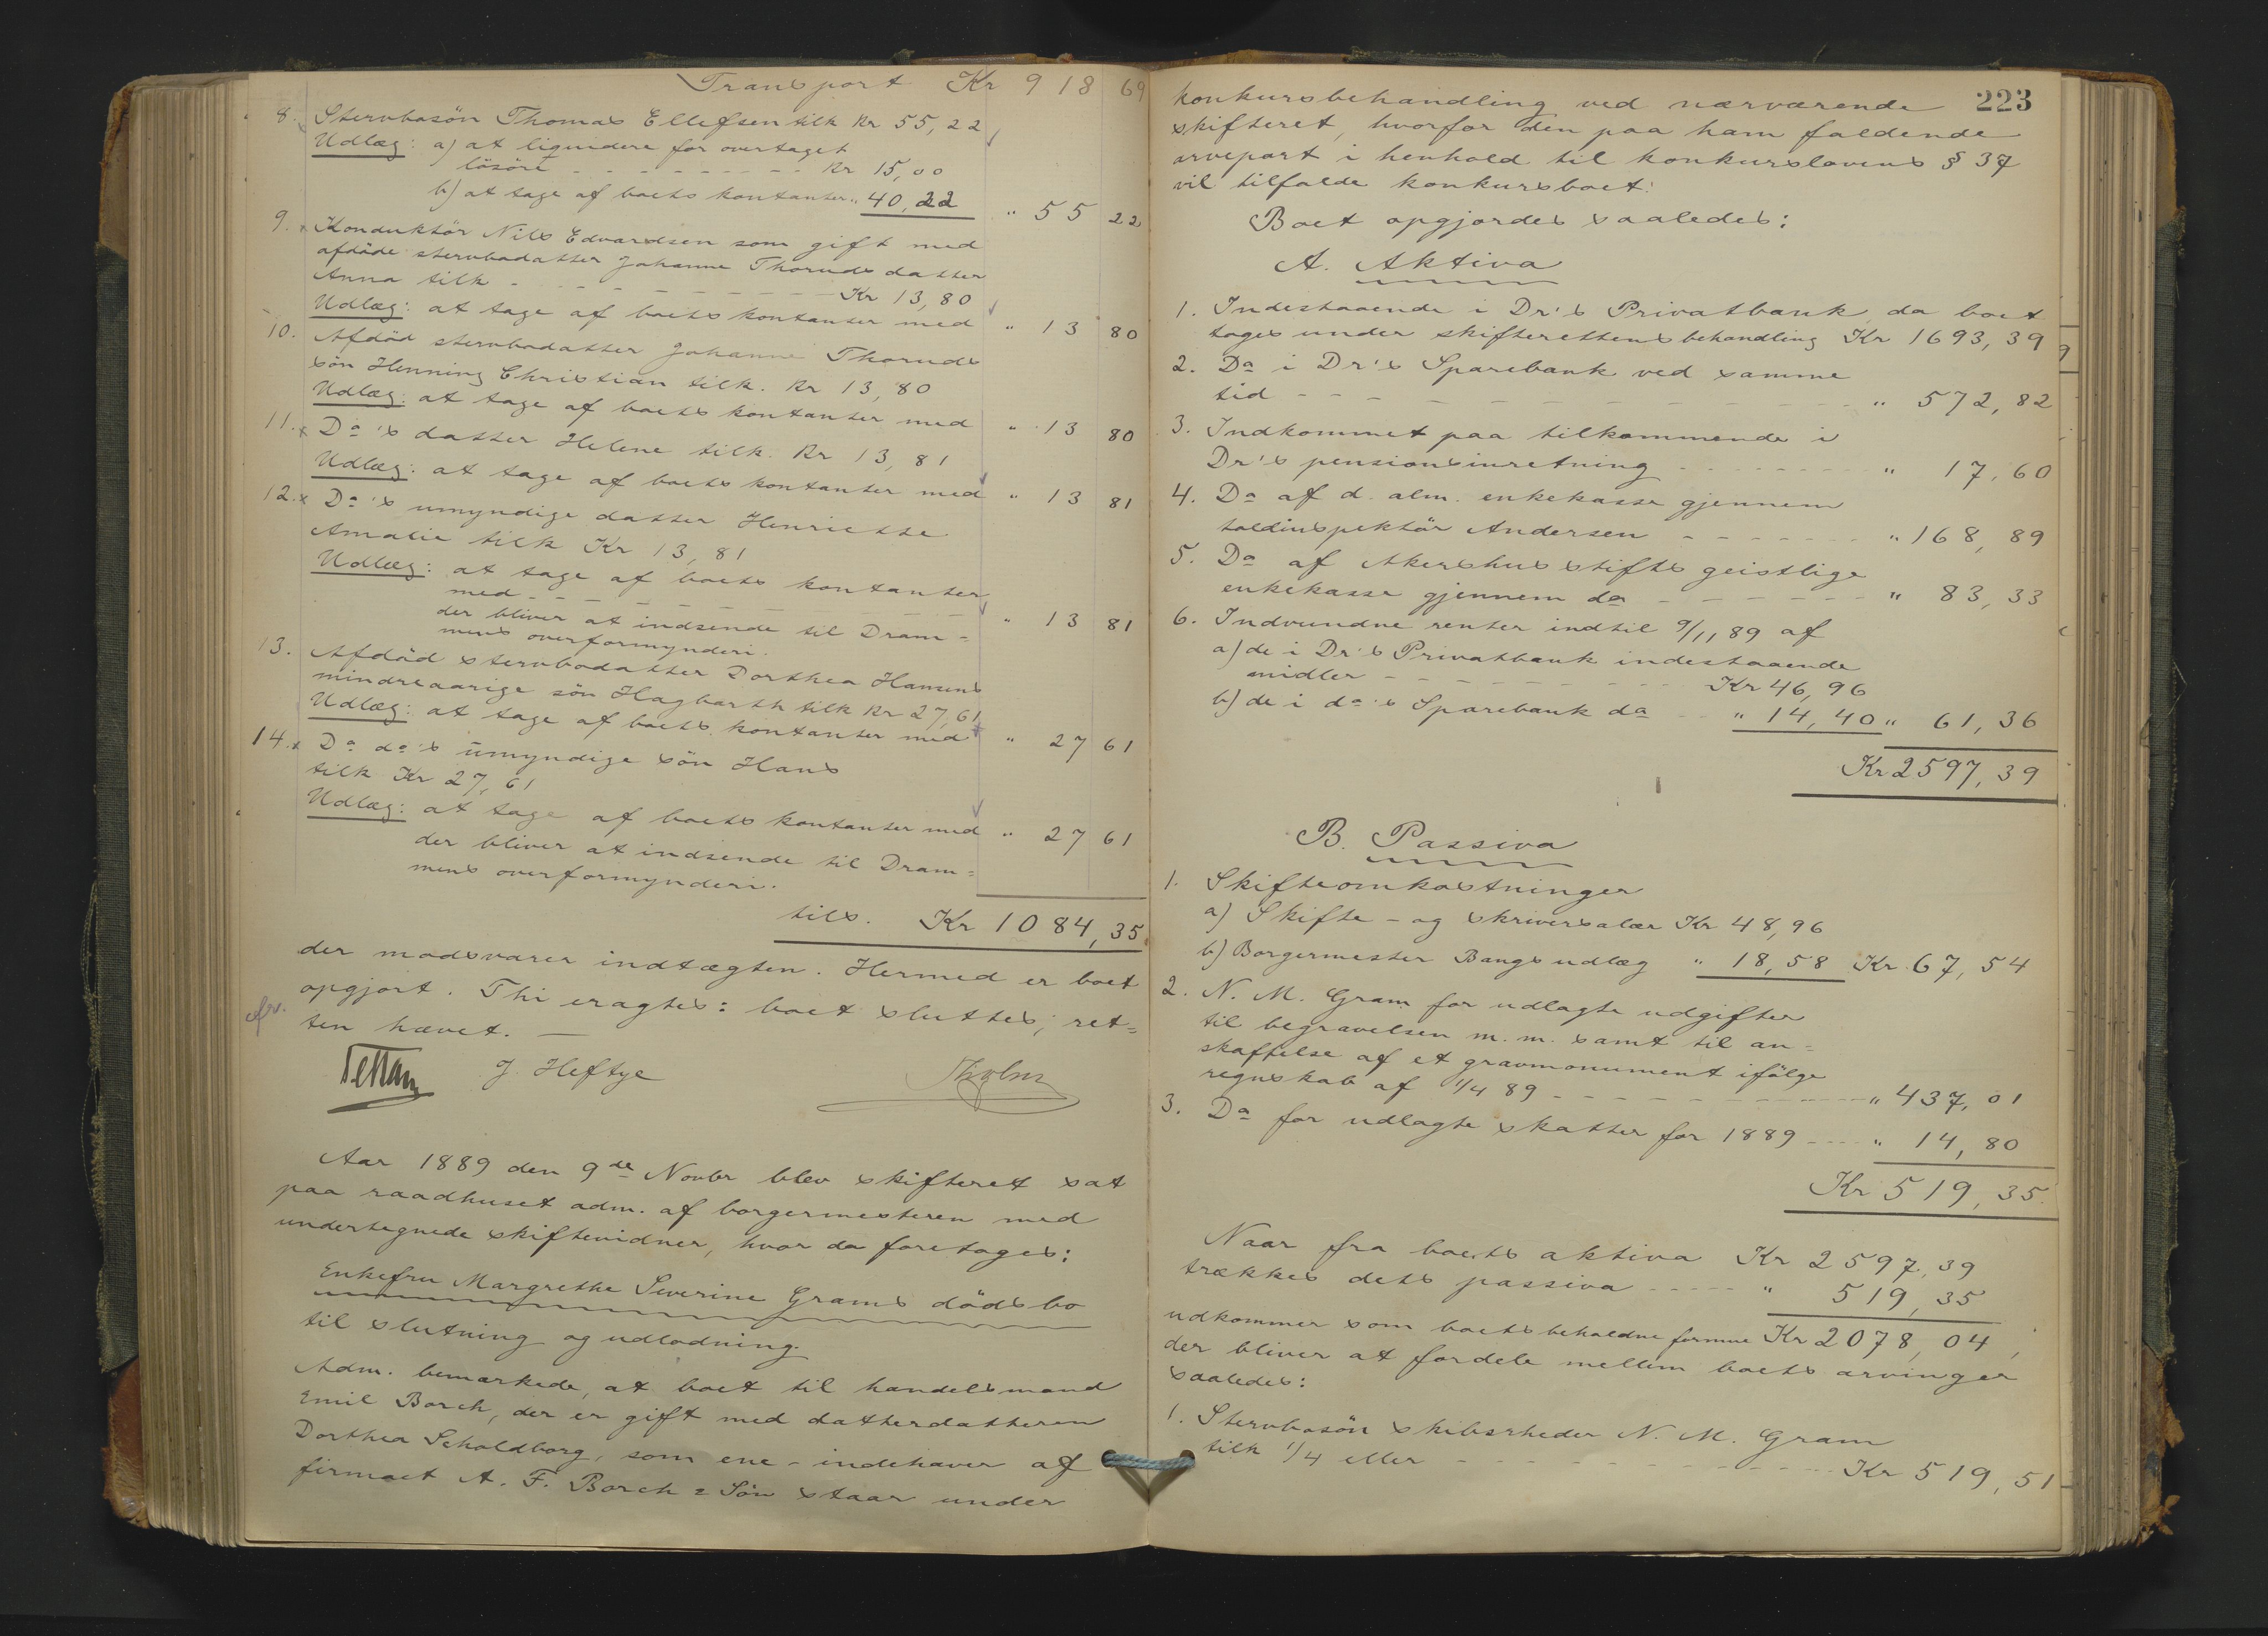 Transport Kr 918 69
8. Stervbosön Thomas Ellefsen tilk Kr 55,22
Udlæg: a) at liquidere for overtaget
lösöre - - - - - - - - - Kr 15,00
b) at tage af boets kontanter " 40,22 " 55 22
9. x Konduktör Nils Edvardsen som gift med
afdöde stervbodatter Johanne Thoruds datter
Anna tilk - - - - - - - - - Kr 13,80
Udlæg: at tage af boets kontanter med " 13 80
10. Afdöd stervbodatter Johanne Thoruds
sön Henning Christian tilk. Kr 13,80
Udlæg: at tage af boets kontanter med " 13 80
11. x Do's datter Helene tilk. Kr 13,81
Udlæg: at tage af boets kontanter med " 13 81
12. x Do's umyndige datter Henriette
Amalie tilk Kr 13,81
Udlæg: at tage af boets kontanter
med - - - - - - - - - " 13 81
der bliver at indsende til Dram=
mens overformynderi.
13. Afdöd stervbodatter Dorthea Hansens
mindreaarige sön Hagbarth tilk Kr 27,61
Udlæg: at tage af boets kontanter med " 27 61
14. x Do do's umyndige sön Hans
tilk Kr 27,61
Udlæg: at tage af boets kontanter med " 27 61
der bliver at indsende til Dram=
mens overformynderi.
tils. Kr 1084,35
der modsvarer indtægten. Hermed er boet
opgjort. Thi eragtes: boet sluttes; ret=
ten hævet. —
J. Heftye
Aar 1889 den 9de Novbr blev skifteret sat
paa raadhuset adm. af borgermesteren med
undertegnede skiftevidner, hvor da foretages:
Enkefru Margrethe Severine Grams dödsbo
til slutning og udlodning.
Adm. bemærkede, at boet til handelsmand
Emil Borch, der er gift med datterdatteren
Dorthea Scholdborg, som ene-indehaver af
firmaet A. F. Borch & Sön staar under
223
konkursbehandling ved nærværende
skifteret, hvorfor den paa ham faldende
arvepart i henhold til konkurslovens § 37
vil tilfalde konkursboet.
Boet opgjordes saaledes:
A. Aktiva
1. Indestaaende i Dr's Privatbank da boet
toges under skifterettens behandling Kr 1693,39
2. Do i Dr's Sparebank ved samme
tid - - - - - - - - - " 572,82
3. Indkommet paa tilkommende i
Dr's pensionsinretning - - - - - " 17,60
4. Do af d. alm. enkekasse gjennem
toldinspektör Andersen - - - - - " 168,89
5. Do af Akershus stifts geistlige
enkekasse gjennem do - - - - - " 83,33
6. Indvundne renter indtil 9/11 89 af
a) de i Dr's Privatbank indestaaende
midler - - - - - - - - - Kr 46,96
b) de i do's Sparebank do - - " 14,40 " 61,36
Kr 2597,39
B. Passiva
1. Skifteomkostninger
a) Skifte- og skriversalær Kr 48,96
b) Borgermester Bangs udlæg " 18,58 Kr. 67,54
2. N. M. Gram for udlagte udgifter
til begravelsen m. m. samt til an=
skaffelse af et gravmonument ifölge
regnskab af 1/4 89 - - - - - - - " 437,01
3. Do for udlagte skatter for 1889 - - - " 14,80
Kr 519,35.
Naar fra boets aktiva Kr 2597,39
trækkes dets passiva - - - - - " 519,35
udkommer som boets beholdne formue Kr 2078,04,
der bliver at fordele mellem boets arvinger
saaledes:
1. Stervbosön skibsrheder N. M. Gram
tilk 1/4 eller - - - - - - - - - Kr 519,51